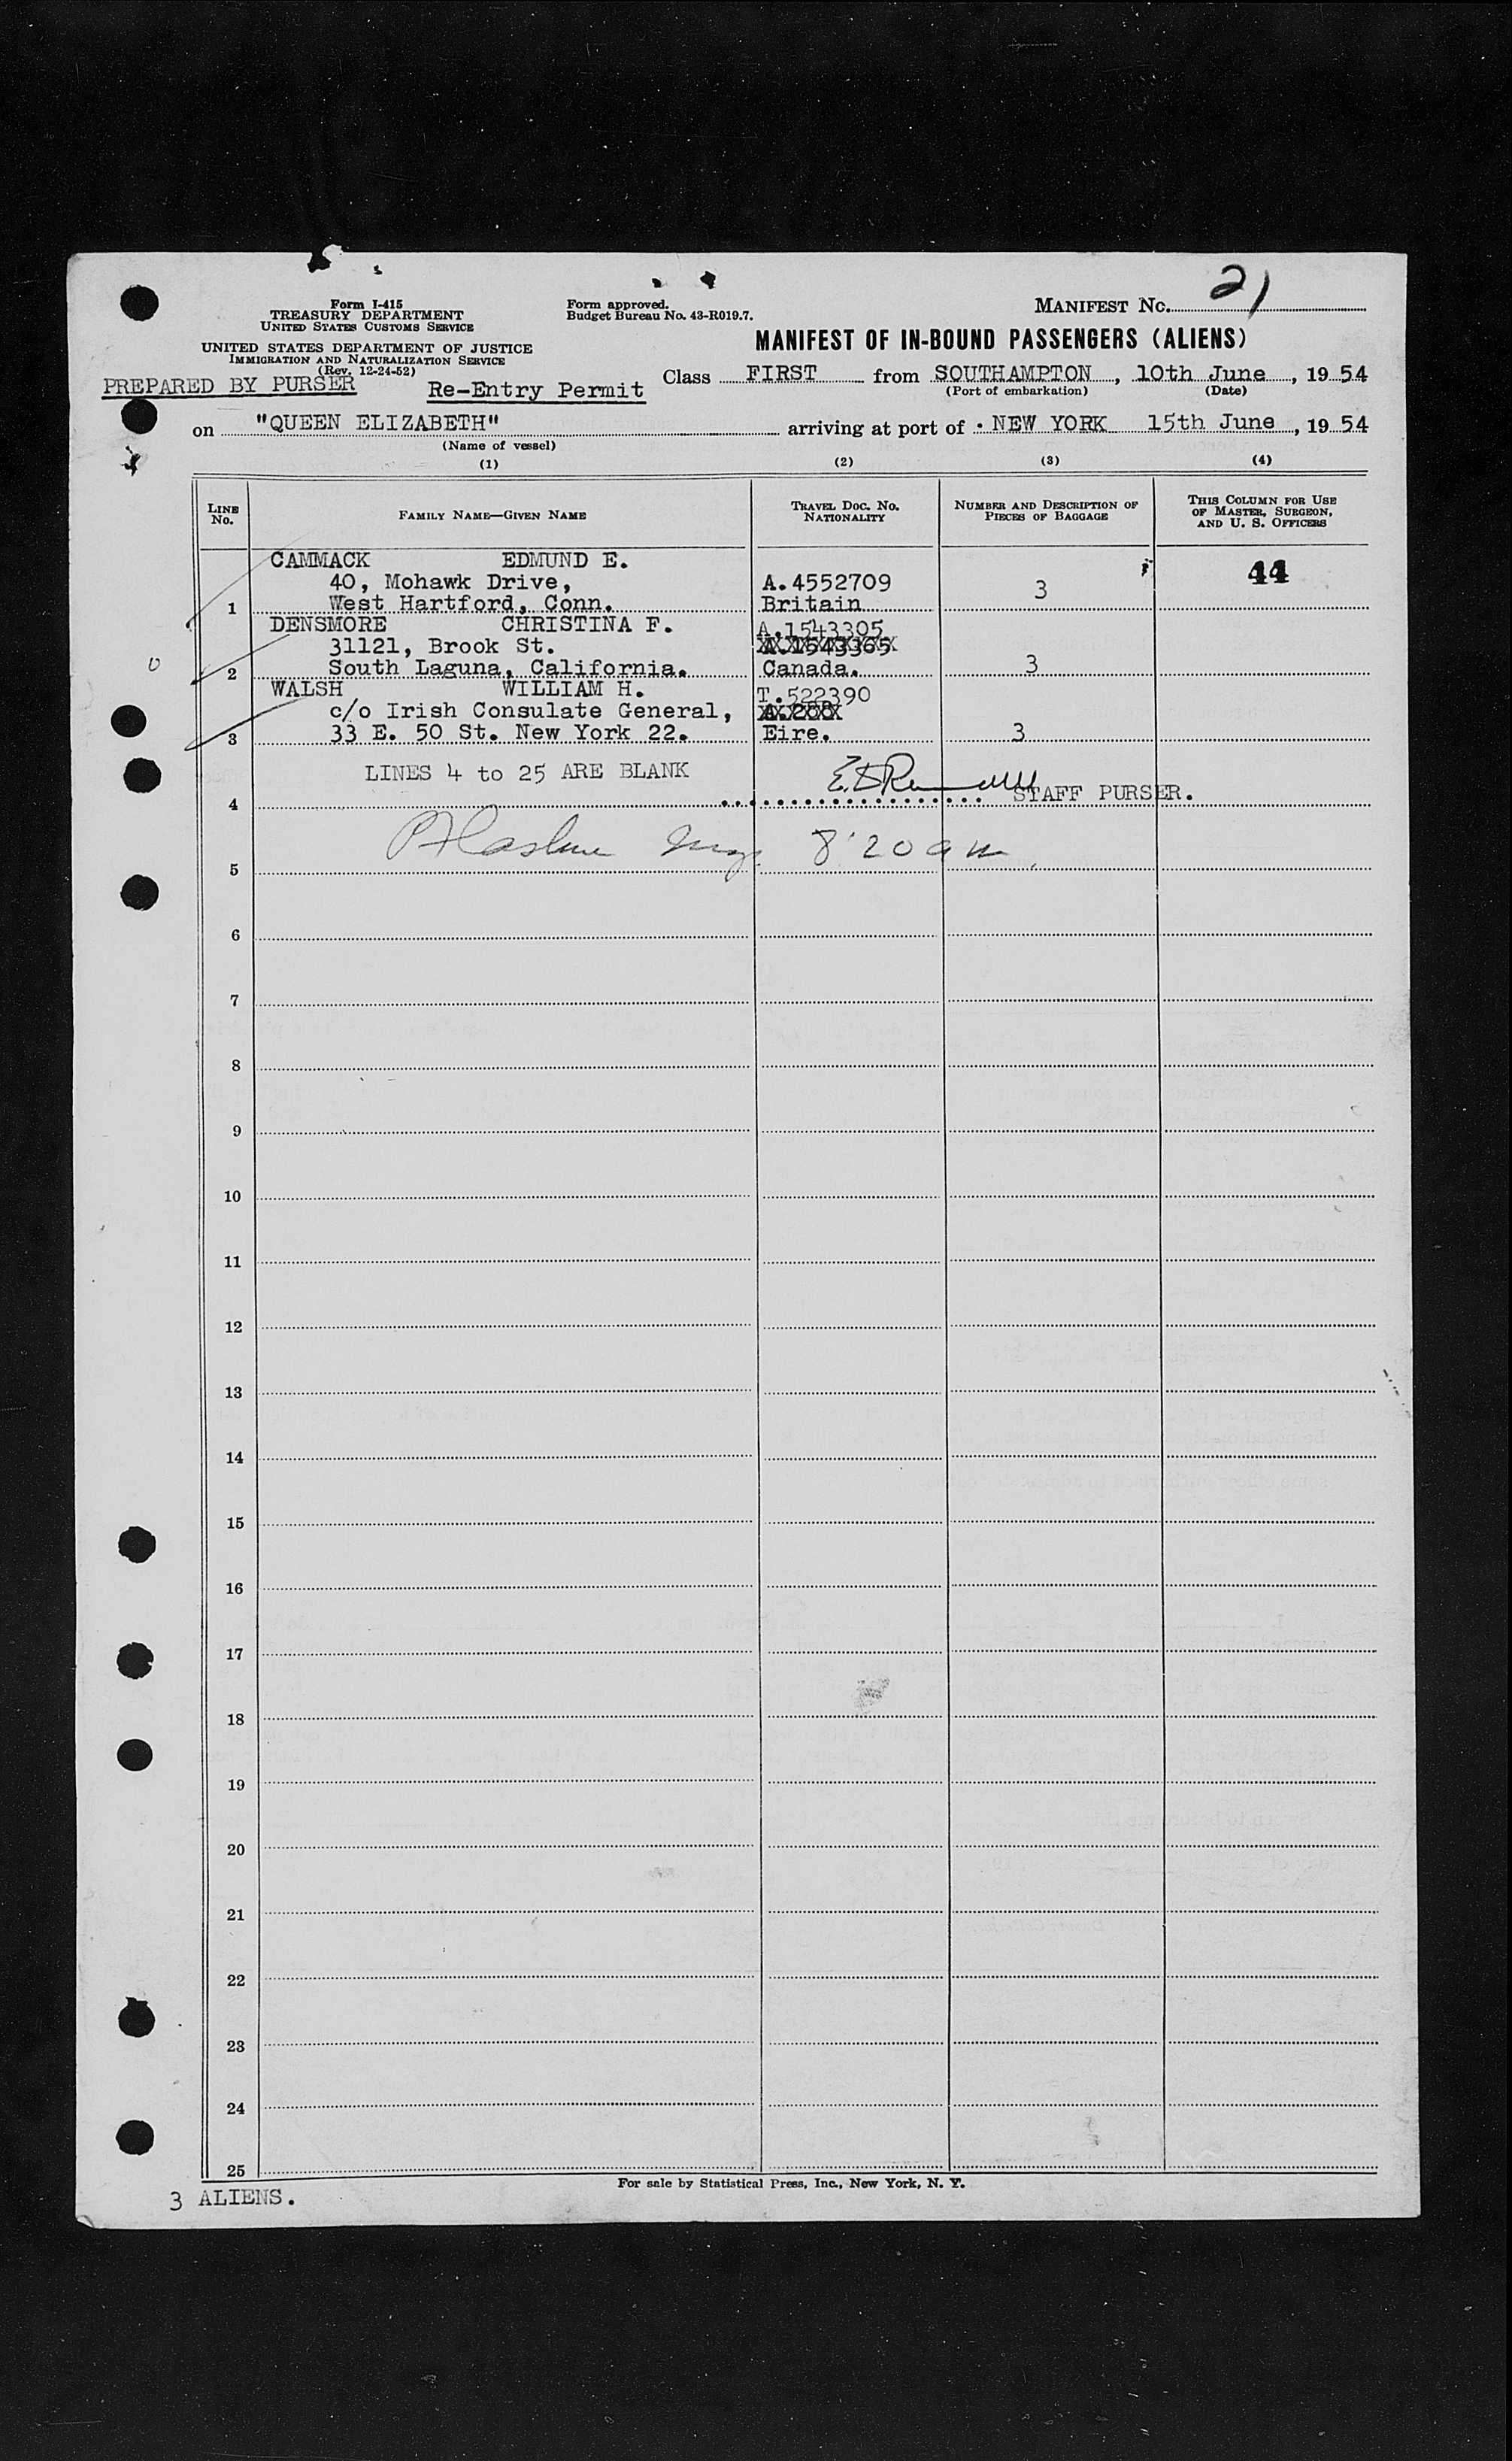 MANIFEST NO. 21
Form I-415
TREASURY DEPARTMENT
UNITED STATES CUSTOMS SERVICE
Form approved.
Budget Bureau No. 43-R019.7.
UNITED STATES DEPARTMENT OF JUSTICE
IMMIGRATION AND NATURALIZATION SERVICE
(Rev. 12-24-52)
MANIFEST OF IN-BOUND PASSENGERS (ALIENS)
PREPARED BY PURSER Re-Entry Permit Class FIRST from SOUTHAMPTON, 10th June, 19 54
(Port of embarkation) (Date)
on "QUEEN ELIZABETH" arriving at port of NEW YORK 15th June, 19 54
(Name of vessel)
(1) (2) (3) (4)
LINE NO. FAMILY NAME—GIVEN NAME TRAVEL DOC. NO. NATIONALITY NUMBER AND DESCRIPTION OF PIECES OF BAGGAGE THIS COLUMN FOR USE OF MASTER, SURGEON, AND U. S. OFFICERS
CAMMACK EDMUND E. 44
40, Mohawk Drive, A.4552709 3
1 West Hartford, Conn. Britain
DENSMORE CHRISTINA F. A.1543305
31121, Brook St. A.1543365
2 South Laguna, California. Canada. 3
WALSH WILLIAM H. T.522390
c/o Irish Consulate General,
3 33 E. 50 St. New York 22. Eire. 3
LINES 4 to 25 ARE BLANK
4 STAFF PURSER.
5 8:20 am
6
7
8
9
10
11
12
13
14
15
16
17
18
19
20
21
22
23
24
25
For sale by Statistical Press, Inc., New York, N. Y.
3 ALIENS.